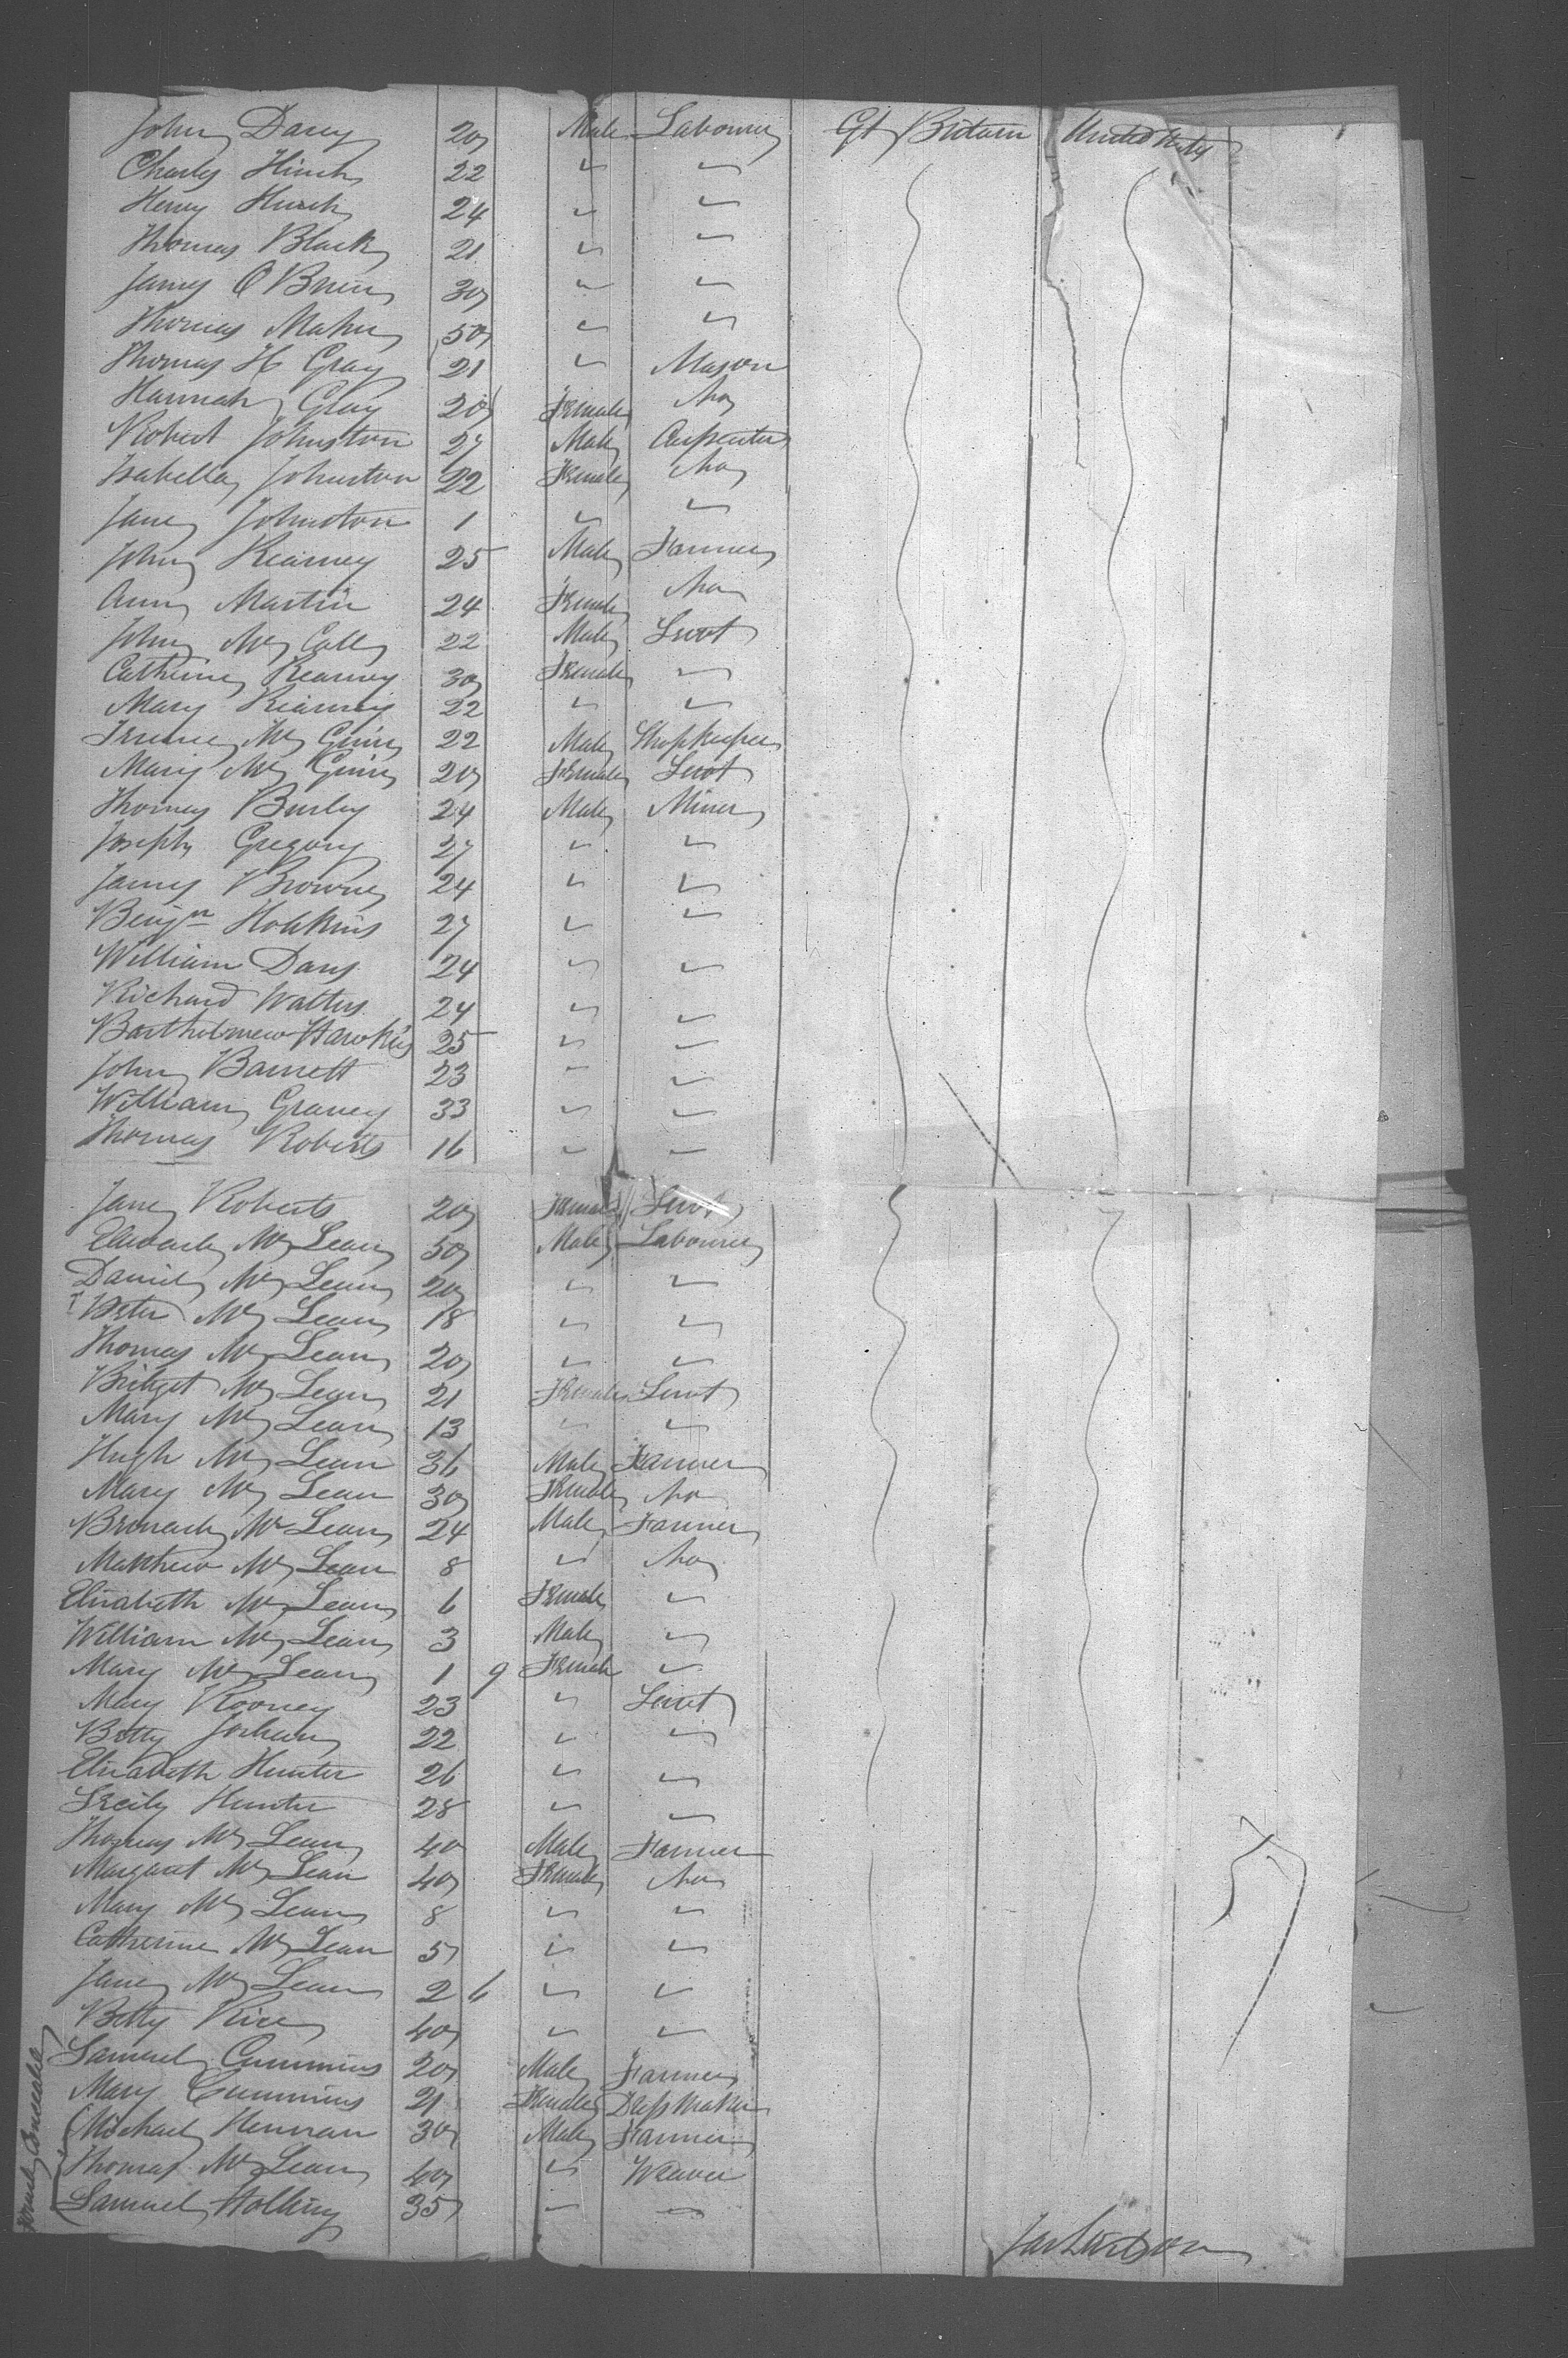 John Darcy 20 Male Labourer Gt Britain United States
Charles Hirsch 22 " "
Henry Hirsch 24 " "
Thomas Black 21 " "
James O'Brien 30 " "
Thomas Maher 50 " "
Thomas H Gray 21 " Mason
Hannah Gray 20 Female No
Robert Johnston 27 Male Carpenter
Isabella Johnston 22 Female No
Jane Johnston 1 " "
John Kearney 25 Male Farmer
Ann Martin 24 Female No
John Mc Call 22 Male Servt
Catherine Kearney 30 Female "
Mary Kearney 22 " "
Mc Guire 22 Male Shopkeeper
Mary Mc Guire 20 Female Servt
Thomas Burley 24 Male Miner
Joseph Gregory 27 " "
James Browne 24 " "
Benjn Hopkins 27 " "
William Davis 24 " "
Richard Walters 24 " "
Bartholomew Hawkins 25 " "
John Barnett 23 " "
William Graney 33 " "
Thomas Roberts 16 " "
Jane Roberts 20 Female Servt
Edward Mc Lean 50 Male Labourer
Daniel Mc Lean 20 " "
Peter Mc Lean 18 " "
Thomas Mc Lean 20 " "
Bridget Mc Lean 21 Female Servt
Mary Mc Lean 13 " "
Hugh Mc Lean 36 Male Farmer
Mary Mc Lean 30 Female No
Bernard Mc Lean 24 Male Farmer
Matthew Mc Lean 8 " No
Elizabeth Mc Lean 6 Female "
William Mc Lean 3 Male "
Mary Mc Lean 1 9 Female "
Mary Rooney 23 " Servt
Betty 22 " "
Elizabeth Hunter 26 " "
Hunter 28 " "
Thomas Mc Lean 40 Male Farmer
Margaret Mc Lean 40 Female No
Mary Mc Lean 8 " "
Catherine Mc Lean 5 " "
Jane Mc Lean 2 6 " "
Betty Rice 40 " "
Samuel Cummins 20 Male Farmer
Mary Cummins 21 Female Dress Maker
Michael Hennan 30 Male Farmer
Thomas Mc Lean 40 " Weaver
Samuel 35 " "